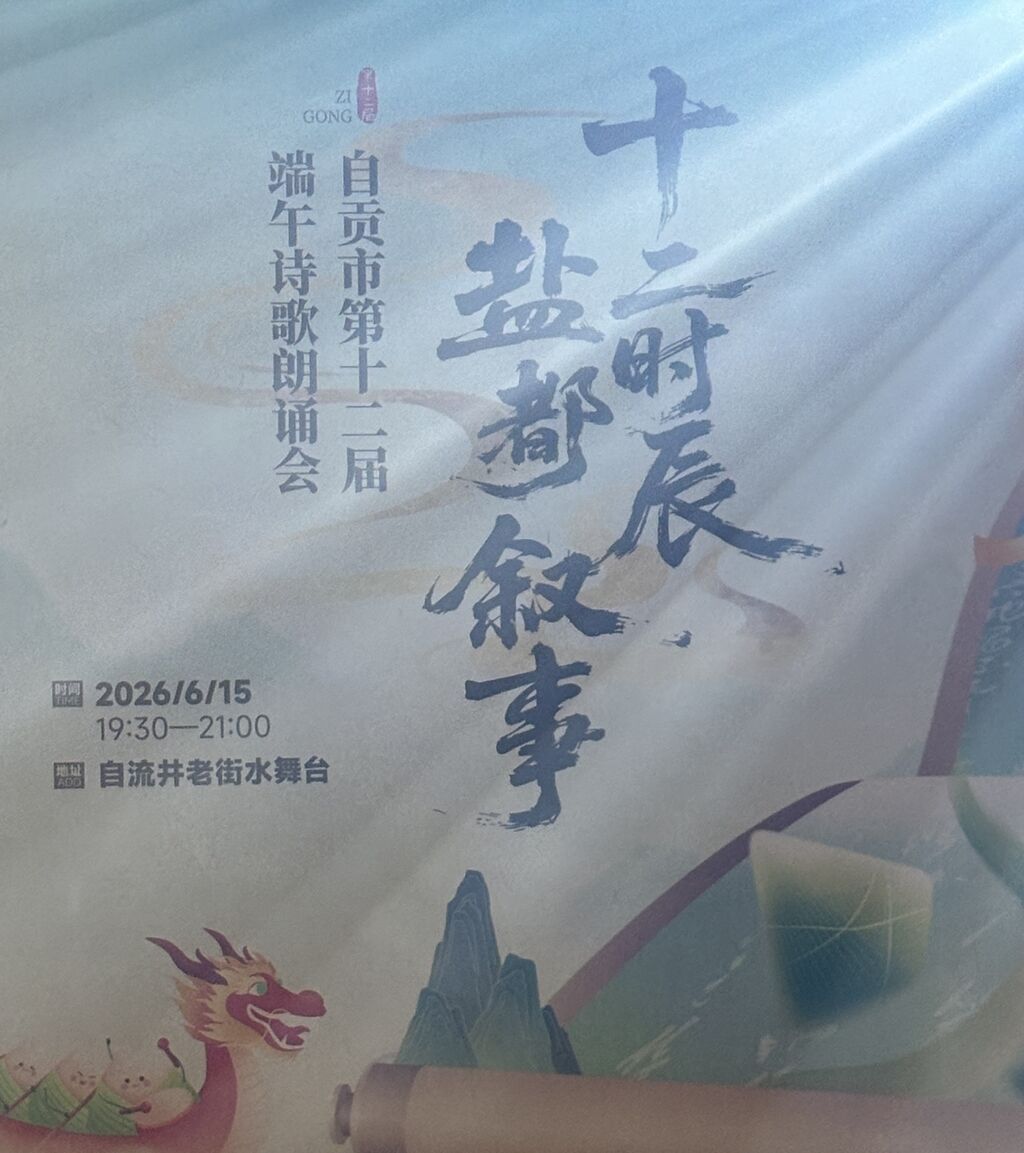 十二时辰
盐都叙事
第十二届
ZI
GONG
自贡市第十二届
端午诗歌朗诵会
时间
TIME
2026/6/15
19:30—21:00
地址
ADD
自流井老街水舞台